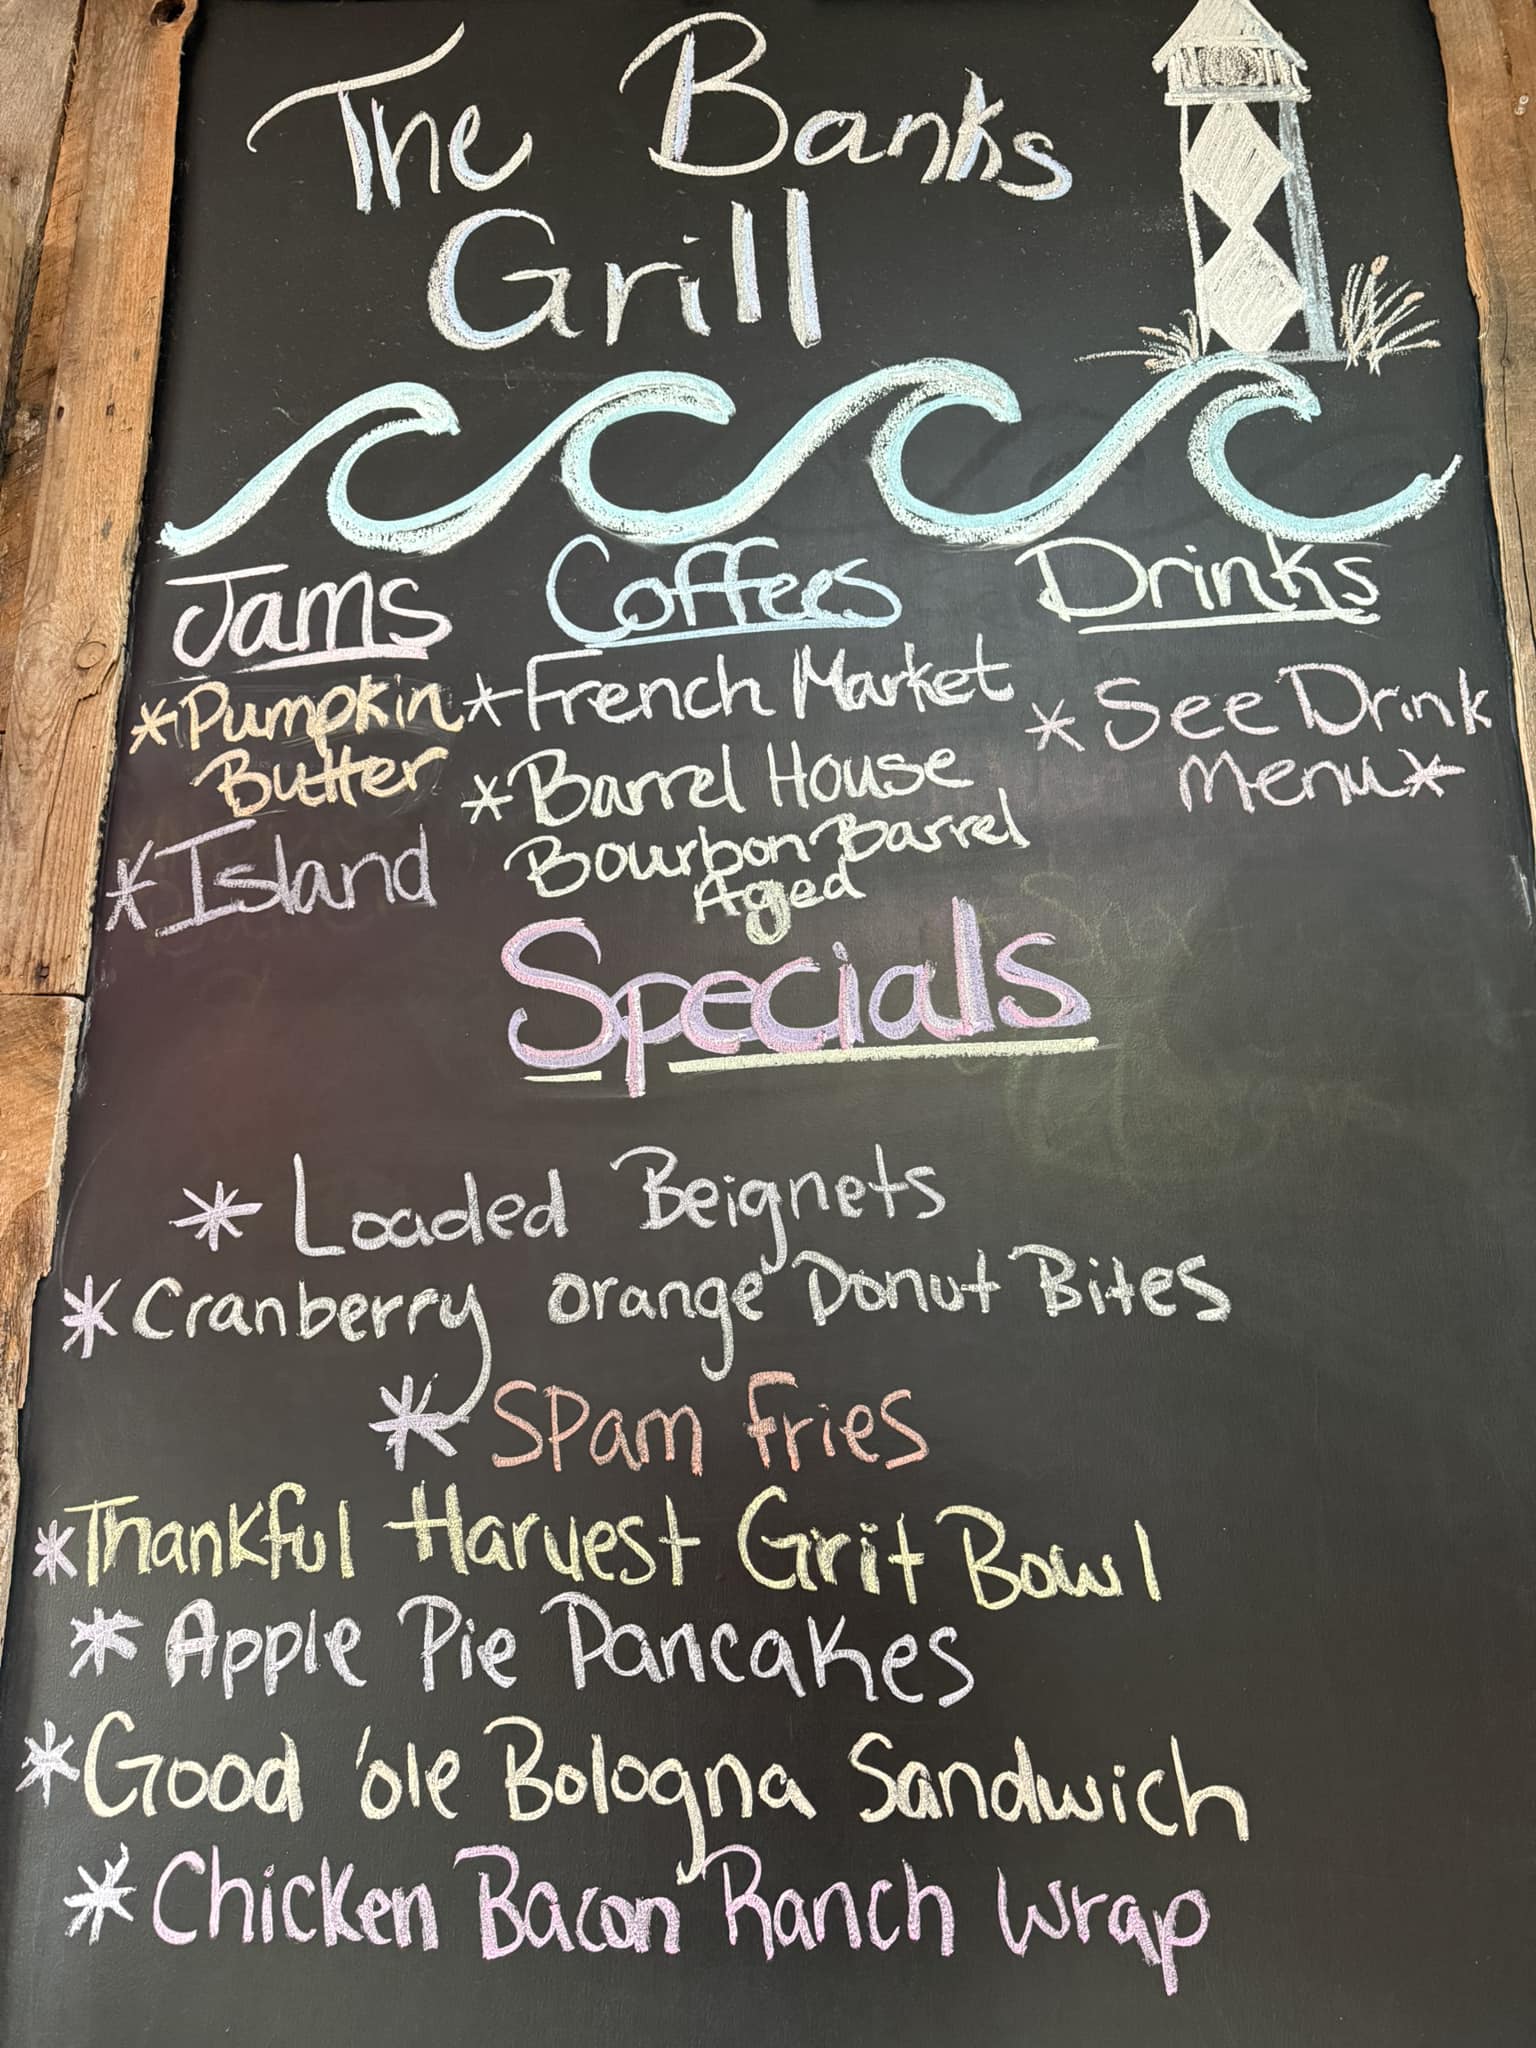 The Banks
Grill
Jams
*Pumpkin
Butter
*Island
Coffees
*French Market
*Barrel House
Bourbon Barrel
Aged
Drinks
*See Drink
Menu*
Specials
* Loaded Beignets
*Cranberry orange Donut Bites
* SPam fries
*Thankful Harvest Grit Bowl
* Apple Pie Pancakes
*Good 'ole Bologna Sandwich
*Chicken Bacon Ranch Wrap